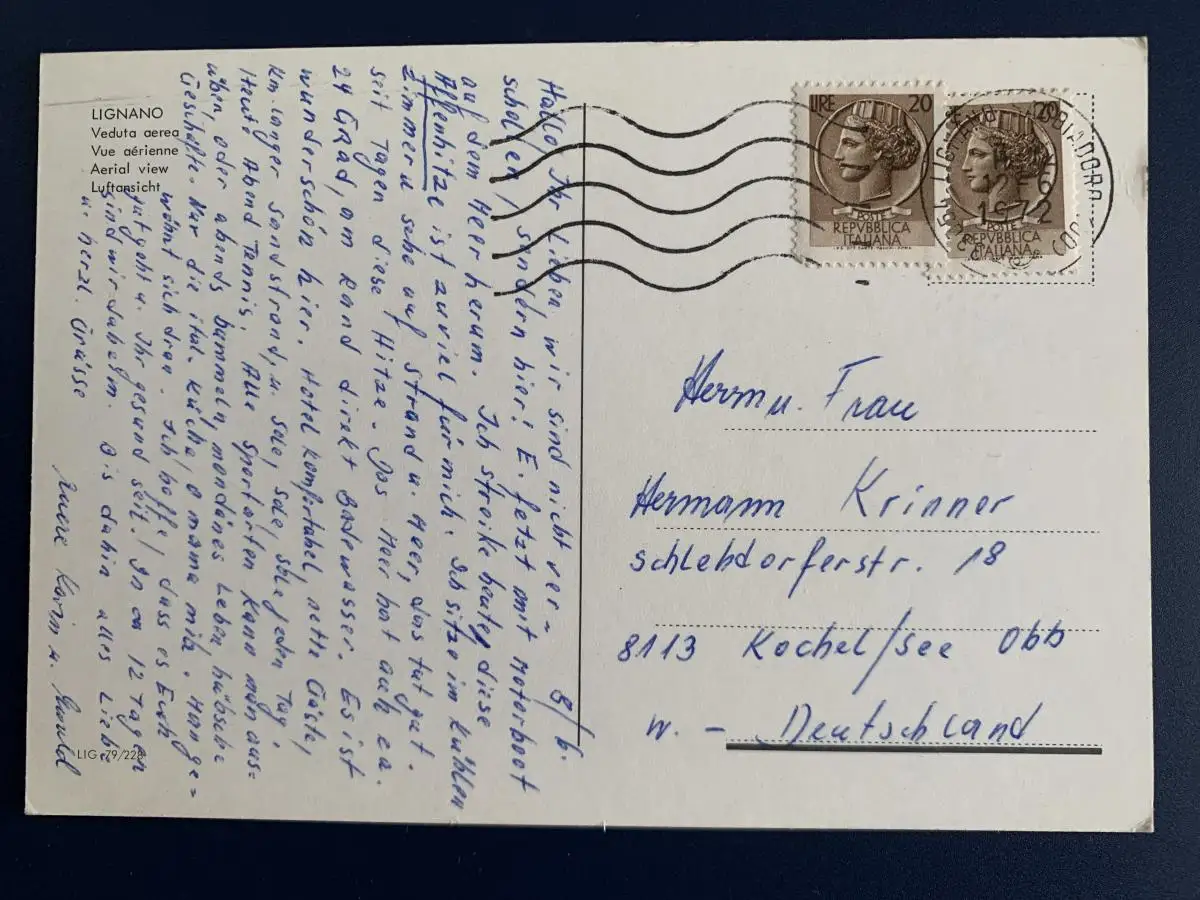 LIGNANO
Veduta aerea
Vue aérienne
Aerial view
Luftansicht
8/6.
Hallo Ihr Lieben, wir sind nicht ver-
schollen, sondern hier! E. fetzt mit Motorboot
auf dem Meer herum. Ich streike heute, diese
Affenhitze ist zuviel für mich. Ich sitze im kühlen
Zimmer u. sehe auf Strand u. Meer, das tut gut.
Seit Tagen diese Hitze. Das Meer hat auch ca.
24 GRAD, am Rand direkt Badewasser. Es ist
wunderschön hier. Hotel komfortabel, nette Gäste,
Km. langer Sandstrand, u. Sole, Sole, Sole jeden Tag.
Heute Abend Tennis. Alle Sportarten kann man aus-
üben, oder abends bummeln, mondänes Leben hübsche
Geschäfte. Nur die ital. Küche, o mamma mia. Man ge-
wöhnt sich dran. Ich hoffe, dass es Euch
gut geht u. Ihr gesund seit! In ca 12 Tagen
sind wir daheim. Bis dahin alles Liebe
u. herzl. Grüsse
Eure Karin u.
LIG 79/228
LIRE 20
POSTE
REPVBBLICA
ITALIANA
20
POSTE
REPVBBLICA
ITALIANA
LIGNANO SABBIADORO
12-6
1972
Herrn u. Frau
Hermann Krinner
Schlehdorferstr. 18
8113 Kochel/See Obb
W. - Deutschland